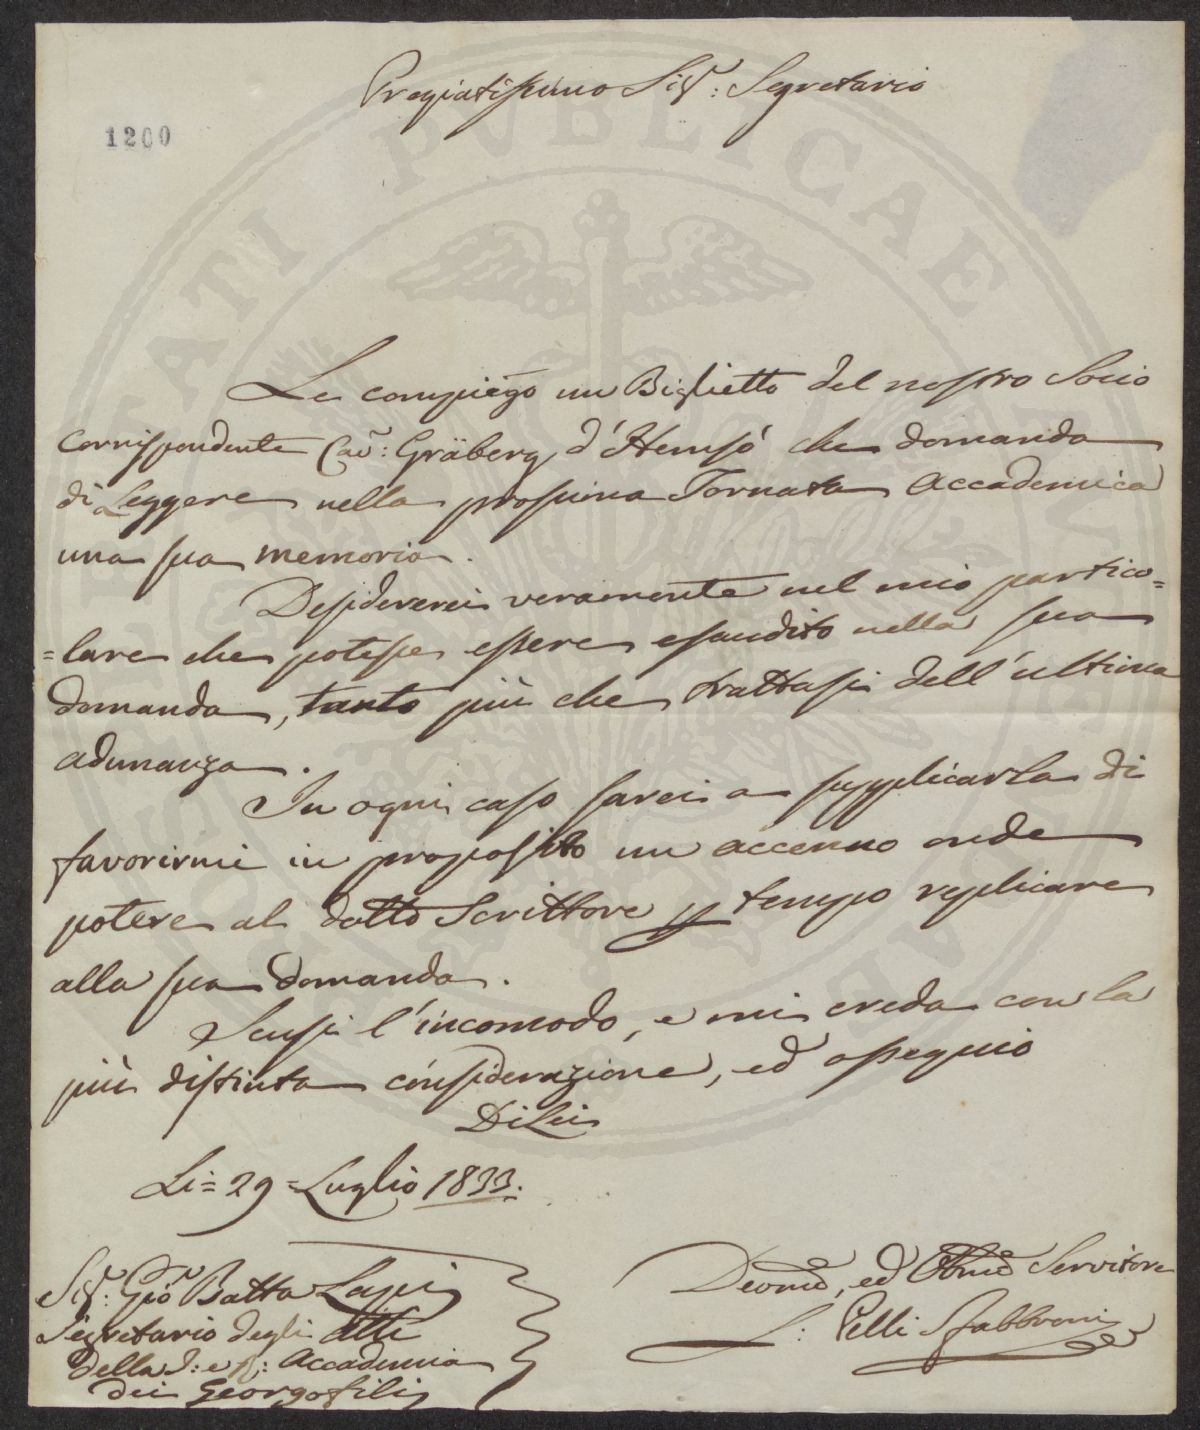 Pregiatissimo Sig.r: Segretario
1200
Le compiego un Biglietto del nostro Socio
Corrispondente Cav: Gräberg d'Hemsö che domanda
di Leggere nella prossima Tornata Accademica
una sua memoria.
Desidererei veramente nel mio partico=
=lare che potesse essere esaudito nella sua
domanda, tanto più che trattasi dell'ultima
adunanza.
In ogni caso sarei a supplicarla di
favorirmi in proposito un accenno onde
potere al dotto Scrittore p tempo replicare
alla sua domanda.
Scusi l'incomodo, e mi creda con la
più distinta considerazione, ed ossequio
Di Lei
Li= 29 = Luglio 1833.
Sig.r: Gio Batta Lapi
Segretario degli Atti
della I: e R: Accademia
dei Georgofili
Devmo, ed Obbmo Servitore
L: Pelli Fabbroni
SOCIETATI PVBLICAE